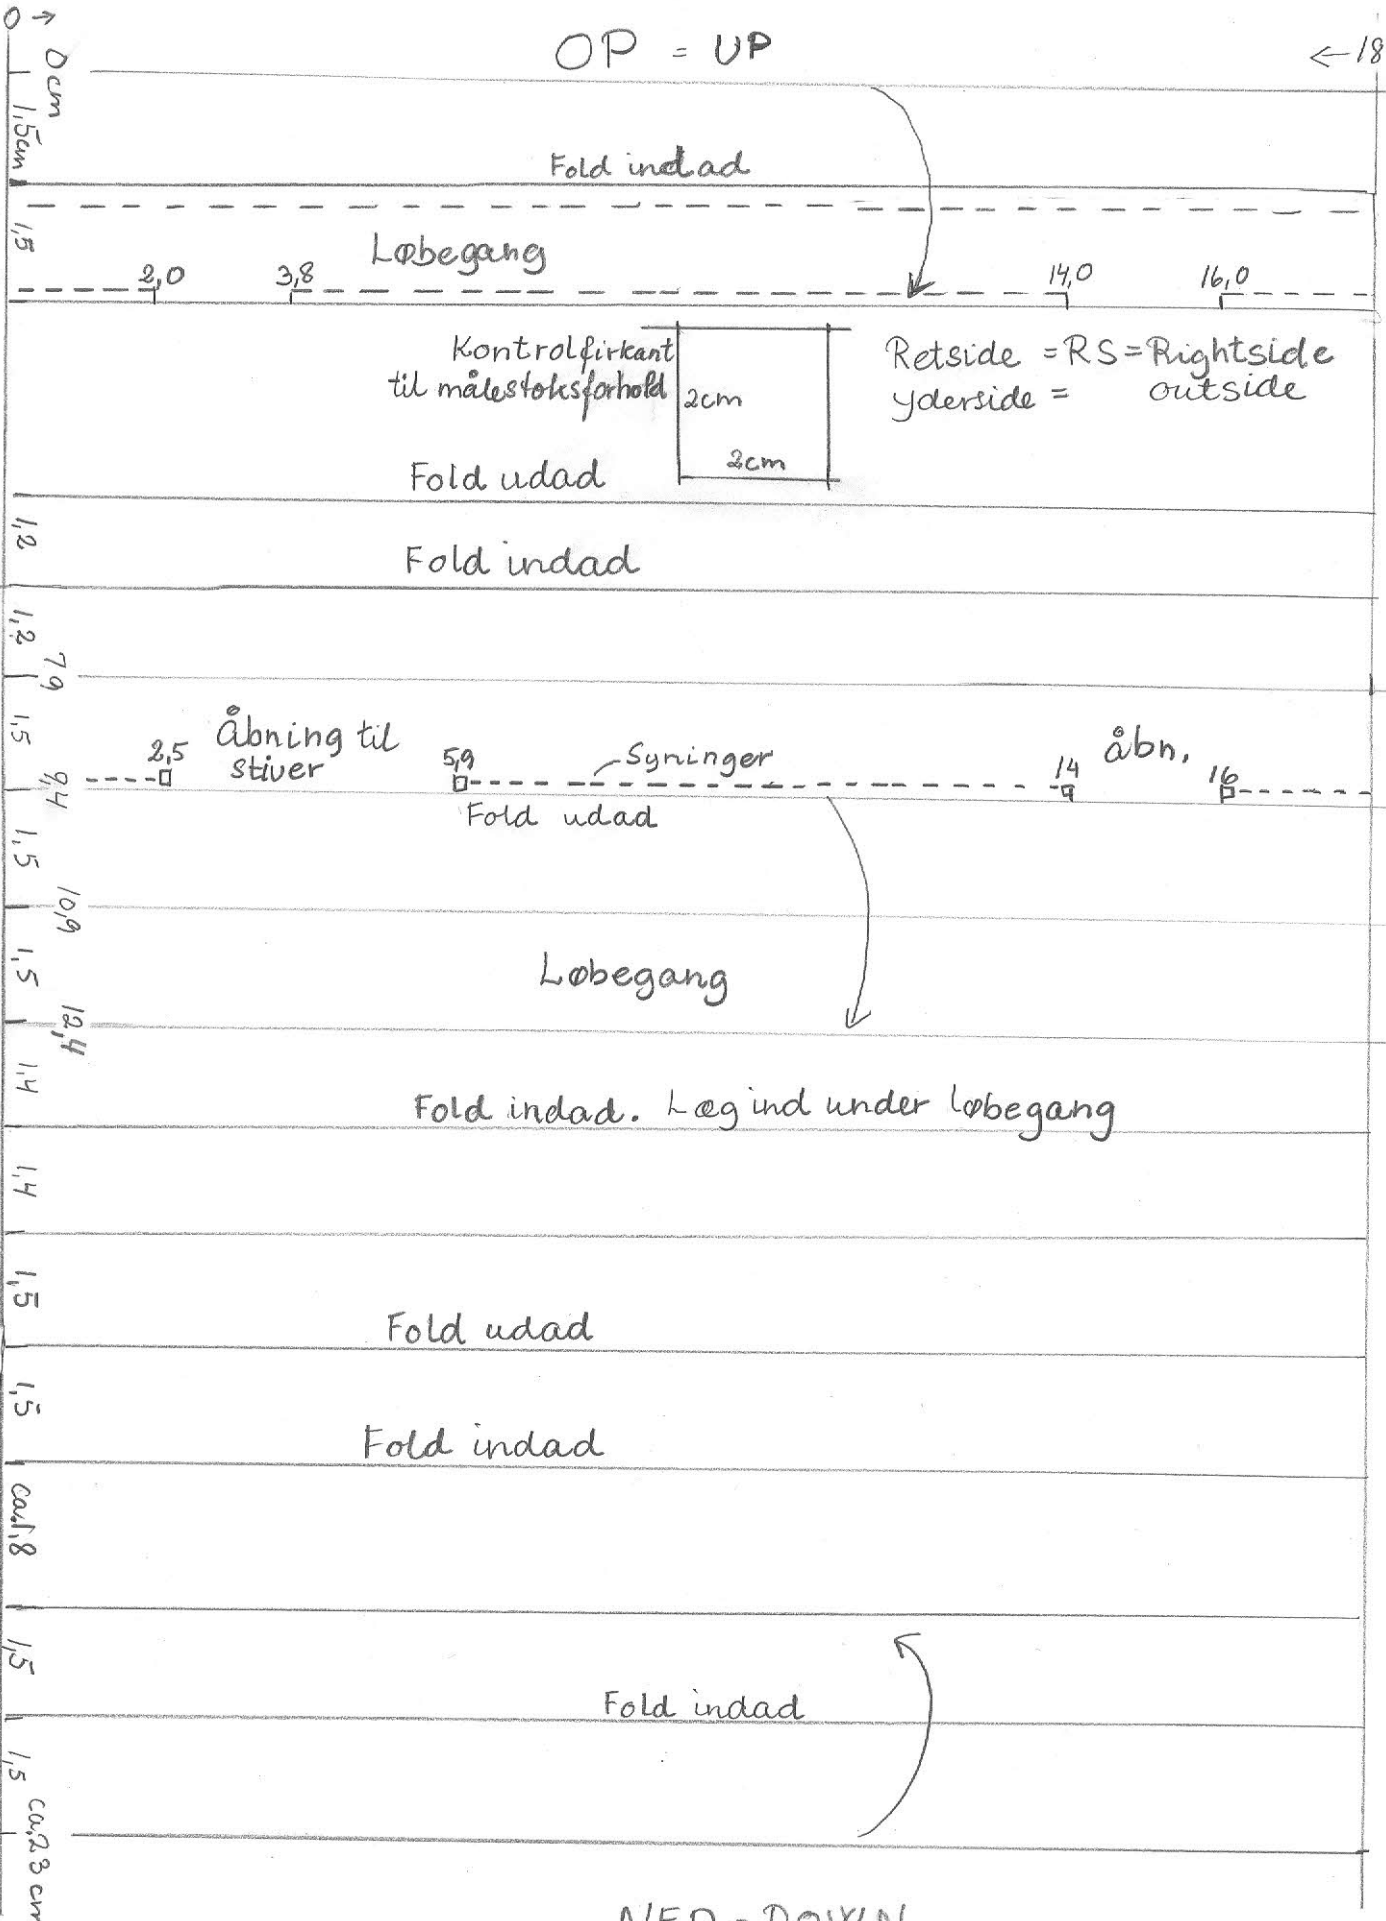 0 →
OP = UP
← 18
0 cm
1,5cm
Fold indad
1,5
Løbegang
2,0
3,8
14,0
16,0
Kontrolfirkant
til målestoksforhold
2cm
2cm
Retside = RS = Rightside
yderside = outside
Fold udad
1,2
Fold indad
1,2
7,9
1,5
Åbning til
stiver
2,5
5,9
Syninger
14
åbn.
16
9,4
Fold udad
1,5
10,9
1,5
Løbegang
12,4
1,4
Fold indad. Læg ind under løbegang
1,4
1,5
Fold udad
1,5
Fold indad
ca.1,8
1,5
Fold indad
1,5
ca.23 cm
NED = DOWN